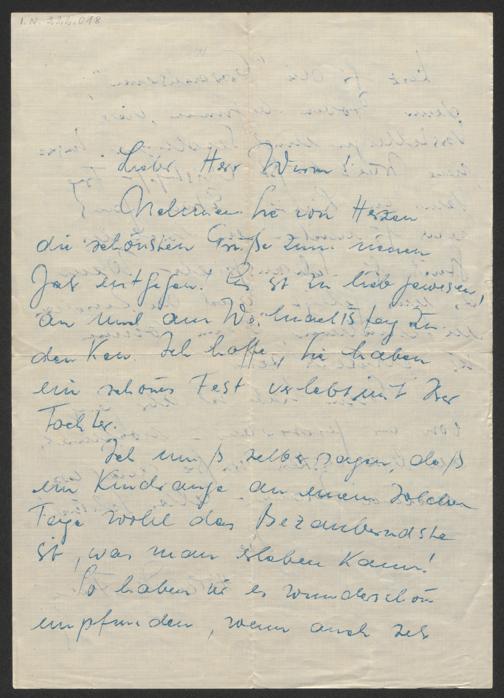 I.N. 226.018
Lieber Herr Wurm!
Nehmen Sie von Herzen
die schönsten Grüße zum neuen
Jahr entgegen. Es ist so lieb gewesen
an mich am Weihnachtstag zu
denken. Ich hoffe, Sie haben
ein schönes Fest verlebt mit Ihrer
Tochter.
Ich muß selber sagen, daß
ein Kindrange an einem solchen
Tage wohl das Bezauberndste
ist, was man erleben kann!
So haben wir es wunderschön
empfunden, wenn auch sehr